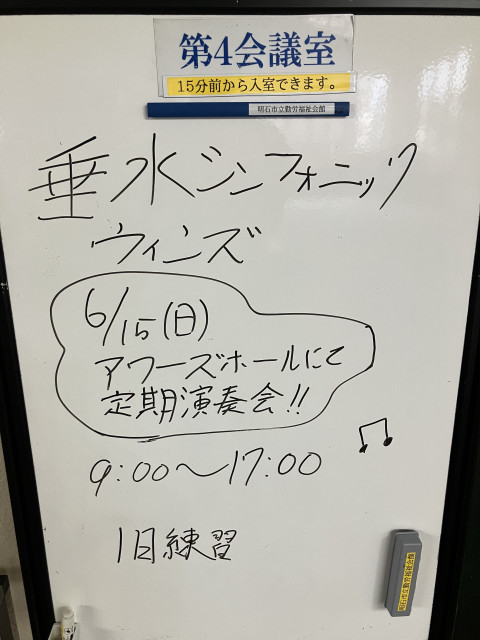 第4会議室
15分前から入室できます。
明石市立勤労福祉会館
垂水シンフォニック
ウィンズ
6/15(日)
アワーズホールにて
定期演奏会!!
9:00〜17:00
1日練習